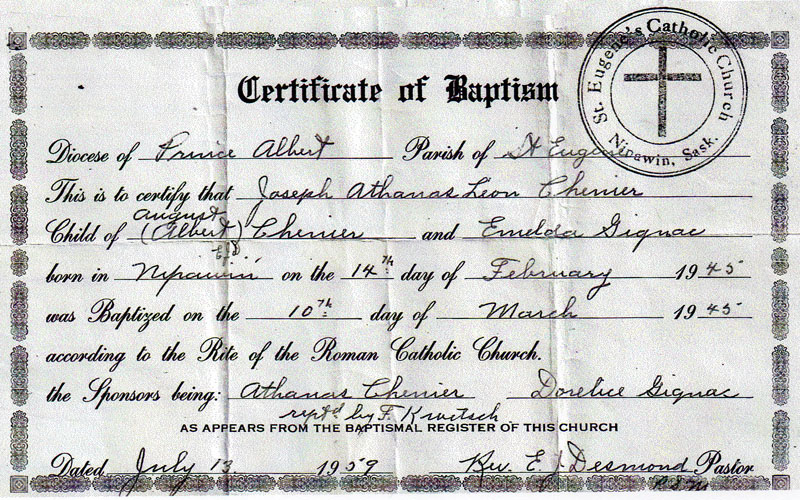 St. Eugene's Catholic Church
Nipawin, Sask.
Certificate of Baptism
Diocese of Prince Albert Parish of St Eugene
This is to certify that Joseph Athanas Leon Chenier
August
Child of (Albert) Chenier and Emelda Gignac
born in Nipawin on the 14th day of February 1945
was Baptized on the 10th day of March 1945
according to the Rite of the Roman Catholic Church.
the Sponsors being: Athanas Chenier Dorelice Gignac
rept'd by F.
AS APPEARS FROM THE BAPTISMAL REGISTER OF THIS CHURCH
Dated July 13 1959 Rev. E. J. Desmond Pastor